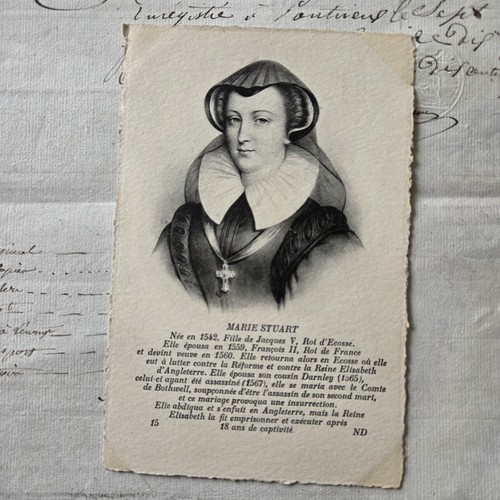 Enregistré à
MARIE STUART
Née en 1542. Fille de Jacques V, Roi d'Ecosse.
Elle épousa en 1559, François II, Roi de France
et devint veuve en 1560. Elle retourna alors en Ecosse où elle
eut à lutter contre la Réforme et contre la Reine Elisabeth
d'Angleterre. Elle épousa son cousin Darnley (1565),
celui-ci ayant été assassiné (1567), elle se maria avec le Comte
de Bothwell, soupçonnée d'être l'assassin de son second mari,
et ce mariage provoqua une insurrection.
Elle abdiqua et s'enfuit en Angleterre, mais la Reine
Elisabeth la fit emprisonner et exécuter après
15 18 ans de captivité ND